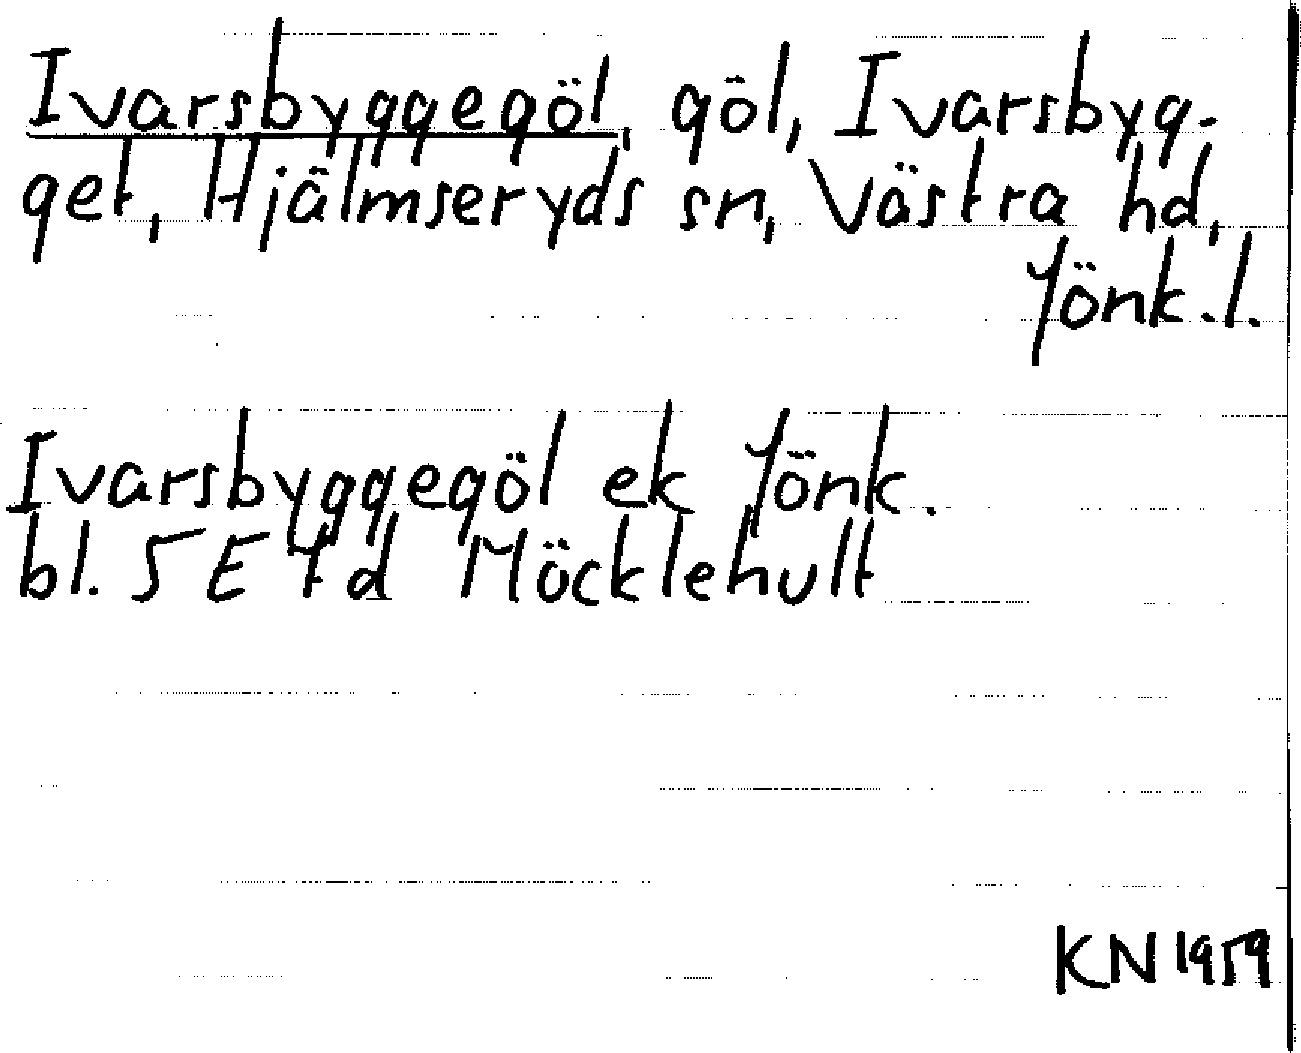 Ivarsbyggegöl, göl, Ivarsbyg-
get, Hjälmseryds sn, Västra hd,
Jönk. l.
Ivarsbyggegöl ek Jönk.
bl. 5 E 4 d Möcklehult
KN 1959